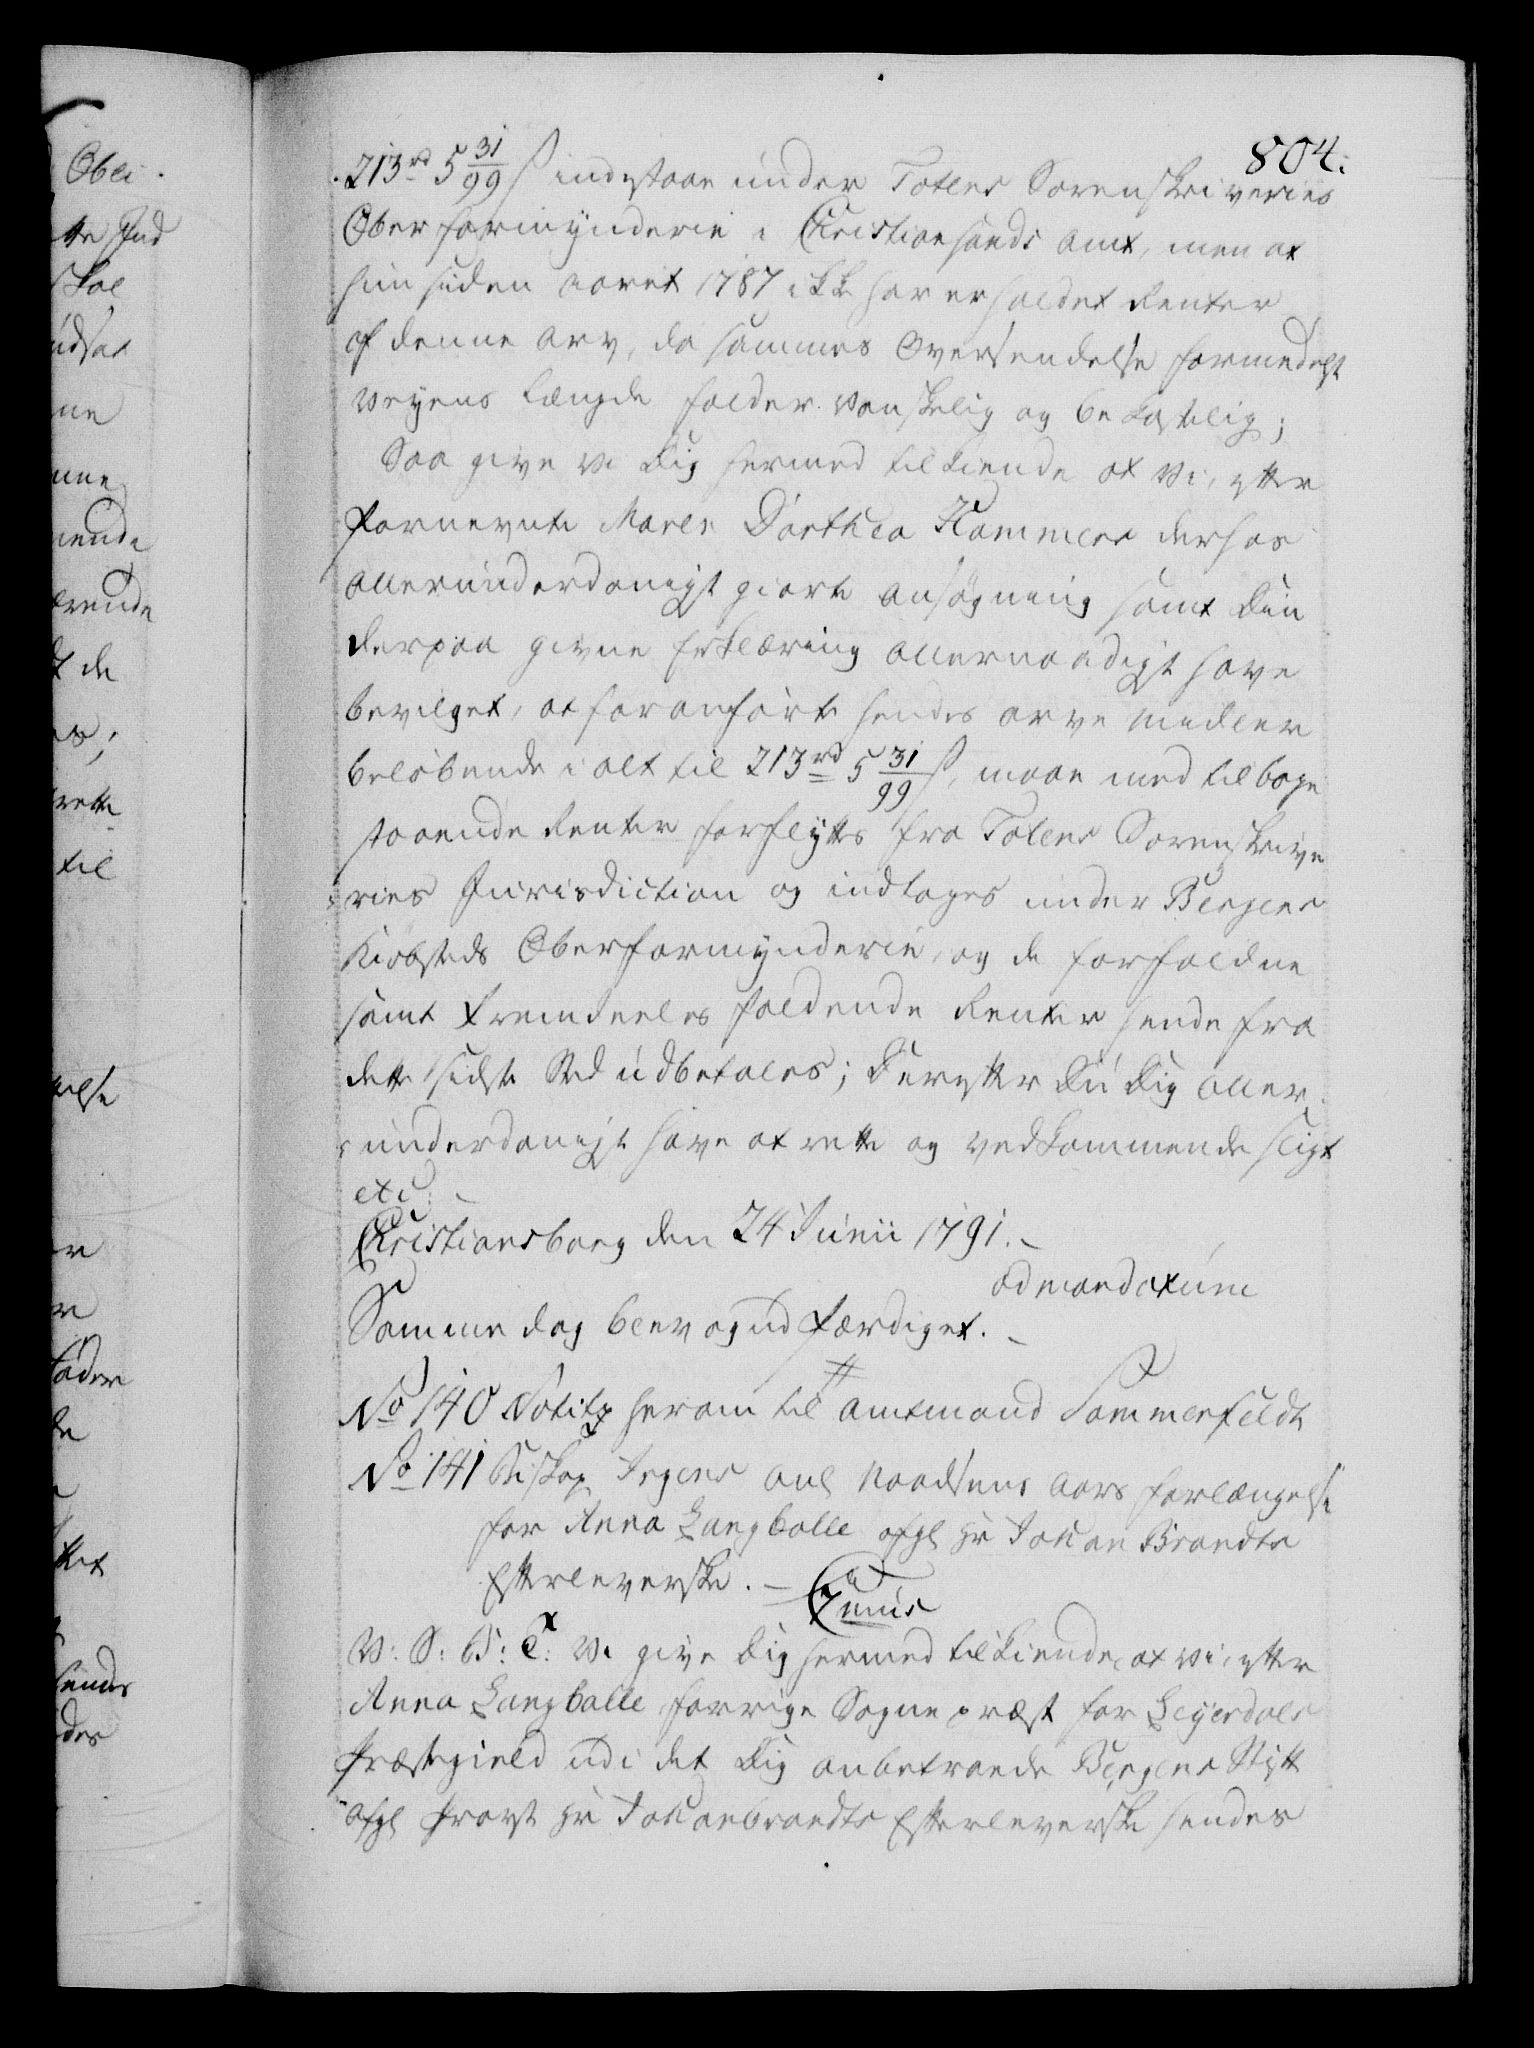 804.
213 rd 5 31/99 ß indestaae under Totens Sorenskriveries
Oberformynderie i Christiansands Amt, men at
hun siden aaret 1787 ikke har erholdet Renter
af denne Arv, da sammes Oversendelse formedelst
Veyens Længde falder vanskelig og bekostelig;
Saa give Vi Dig hermed tilkiende at Vi, efter
fornevnte Maren Dorthea Hammers derhos
allerunderdanigst giorte Ansøgning samt Din
derpaa givne Erklæring allernaadigst have
bevilget, at foranførte hendes Arve Midler
beløbende i alt til 213 rd 5 31/99 ß, maae med tilbage
staaende Renter forflyttes fra Totens Sorenskrive
ries Jurisdiction og indtages under Bergens
Kiøbsteds Oberformynderie, og de forfaldne
samt fremdeeles faldende Renter hende fra
dette sidste Sted udbetales; Derefter Du Dig aller
underdanigst have at rette og vedkommende sligt
etc:
Christiansborg den 24 Junii 1791.
ad mandatum
Samme dag blev og udfærdiget.
No 140 Notitz herom til Amtmand Sommerfeldt
No 141 Biskop Irgens ang Naadsens Aars forlængelse
for Anna Langballe afgl Hr Johan Brandts
Efterleverske.
V: S: B: T: Vi give Dig hermed tilkiende, at Vi, efter
Anna Langballe forrige Sognepræst for Leyerdals
Præstegield udi det Dig anbetroede Bergens Stift
afgl Provst Hr Johanbrandts Efterleverske hendes